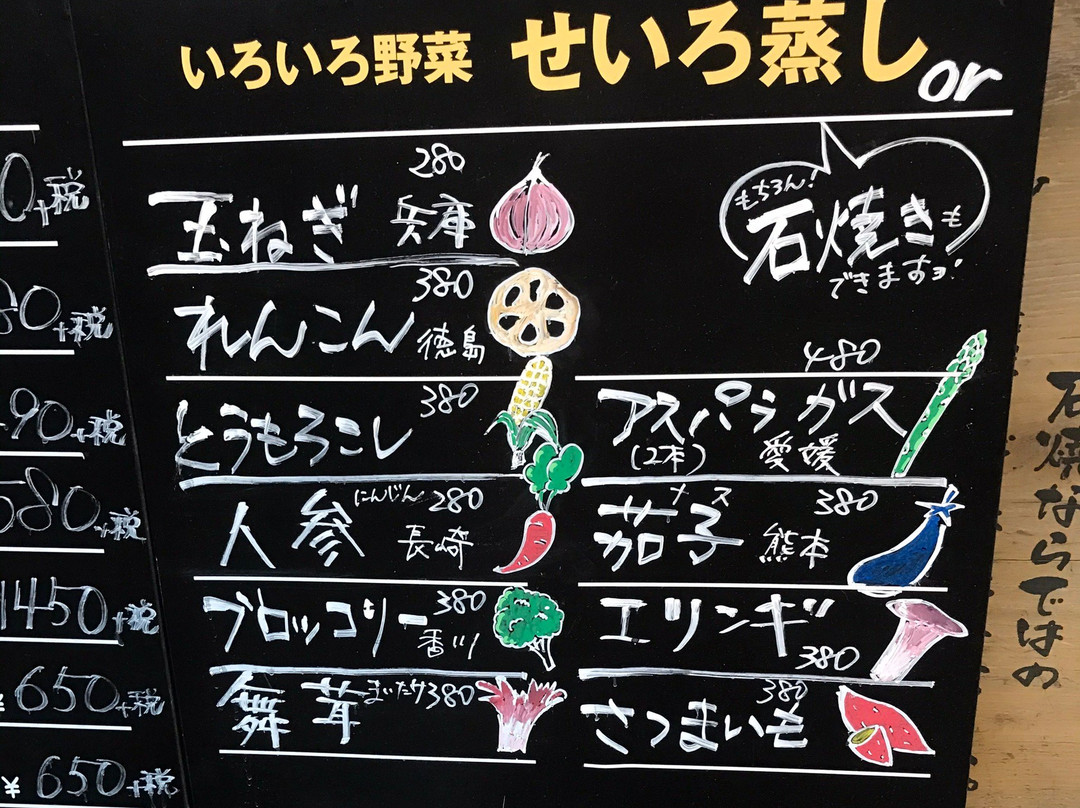 いろいろ野菜 せいろ蒸し or
もちろん!
石焼きも
できますヨ!
280
玉ねぎ 兵庫
380
れんこん 徳島
380
とうもろこし
にんじん 280
人参 長崎
ブロッコリー 380
香川
舞茸 まいたけ 380
480
アスパラガス
(2本) 愛媛
ナス 380
茄子 熊本
エリンギ
380
380
さつまいも
0+税
80+税
490+税
580+税
1450+税
¥650+税
¥650+税
石焼ならではの